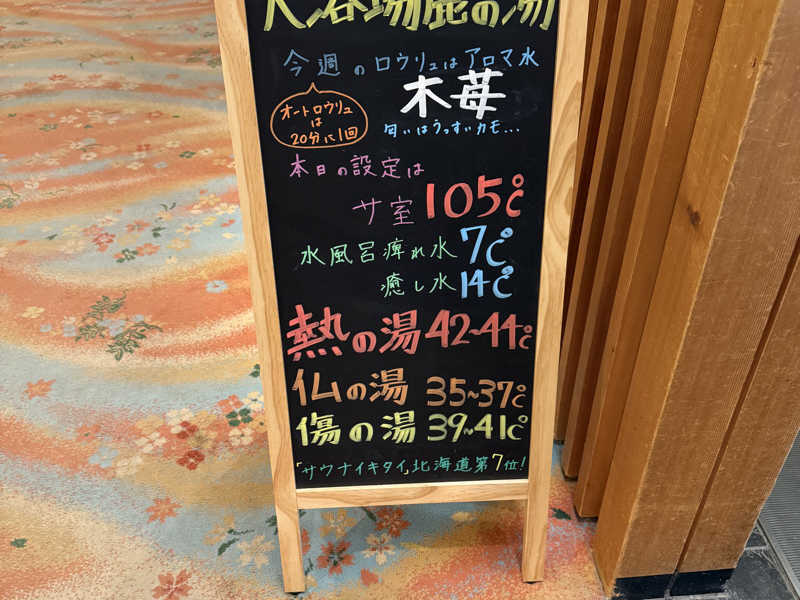 大浴場鹿の湯
今週のロウリュはアロマ水
木苺
オートロウリュ
は
20分に1回
匂いはうっすいカモ...
本日の設定は
サ室 105℃
水風呂痺れ水 7℃
癒し水 14℃
熱の湯 42~44℃
仏の湯 35~37℃
傷の湯 39~41℃
「サウナイキタイ」北海道第7位!